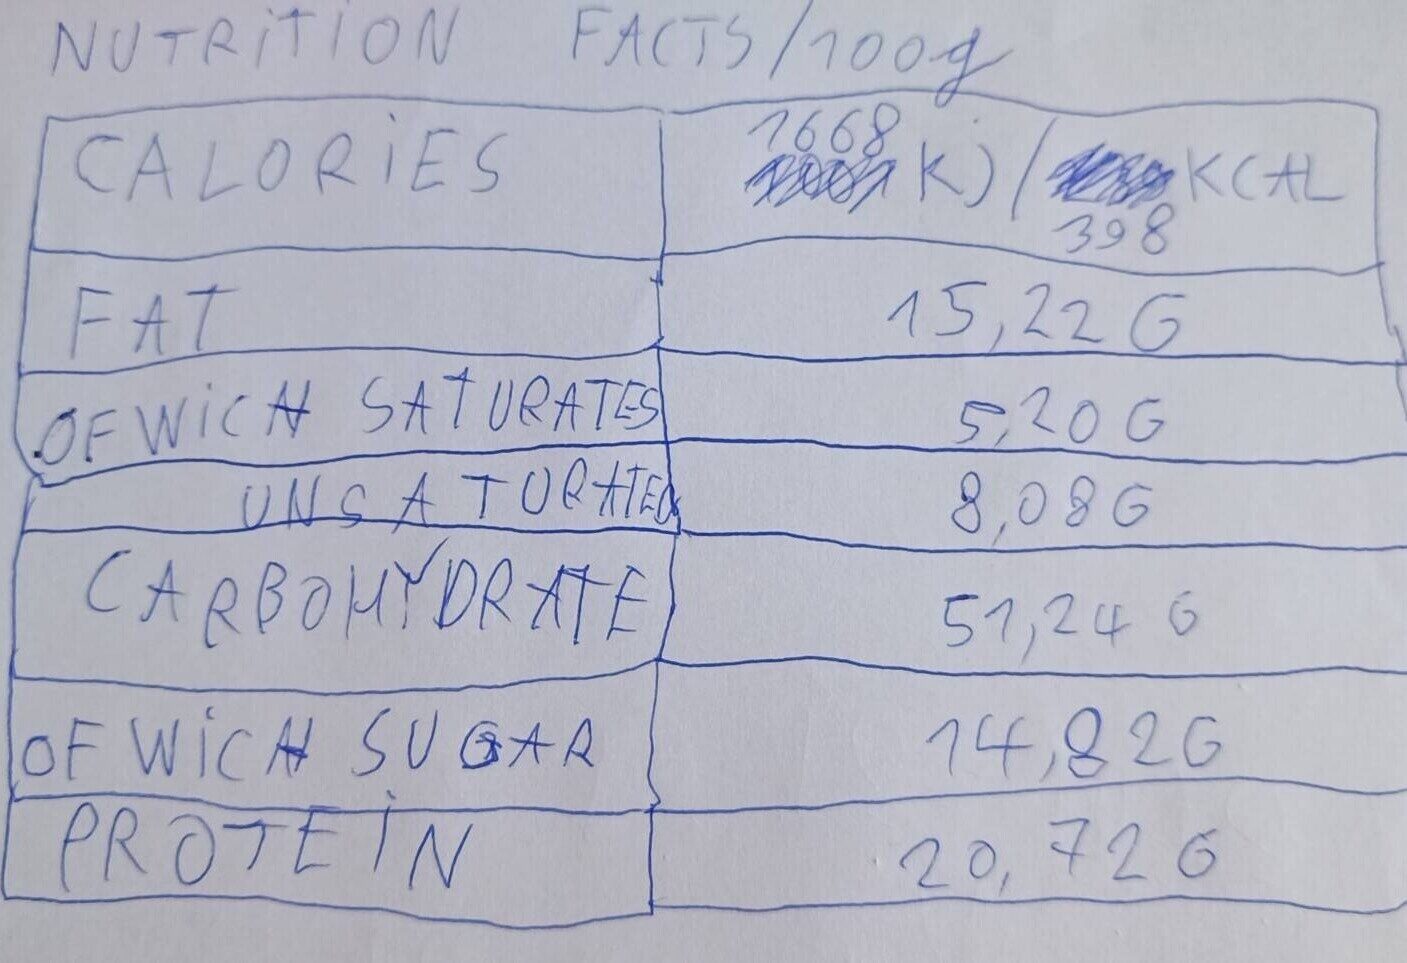 NUTRITION FACTS/100g
CALORIES 1668 KJ/ 398 KCAL
FAT 15,22 G
OF WICH SATURATES 5,20 G
UNSATURATED 8,08 G
CARBOHYDRATE 51,24 G
OF WICH SUGAR 14,82 G
PROTEIN 20,72 G